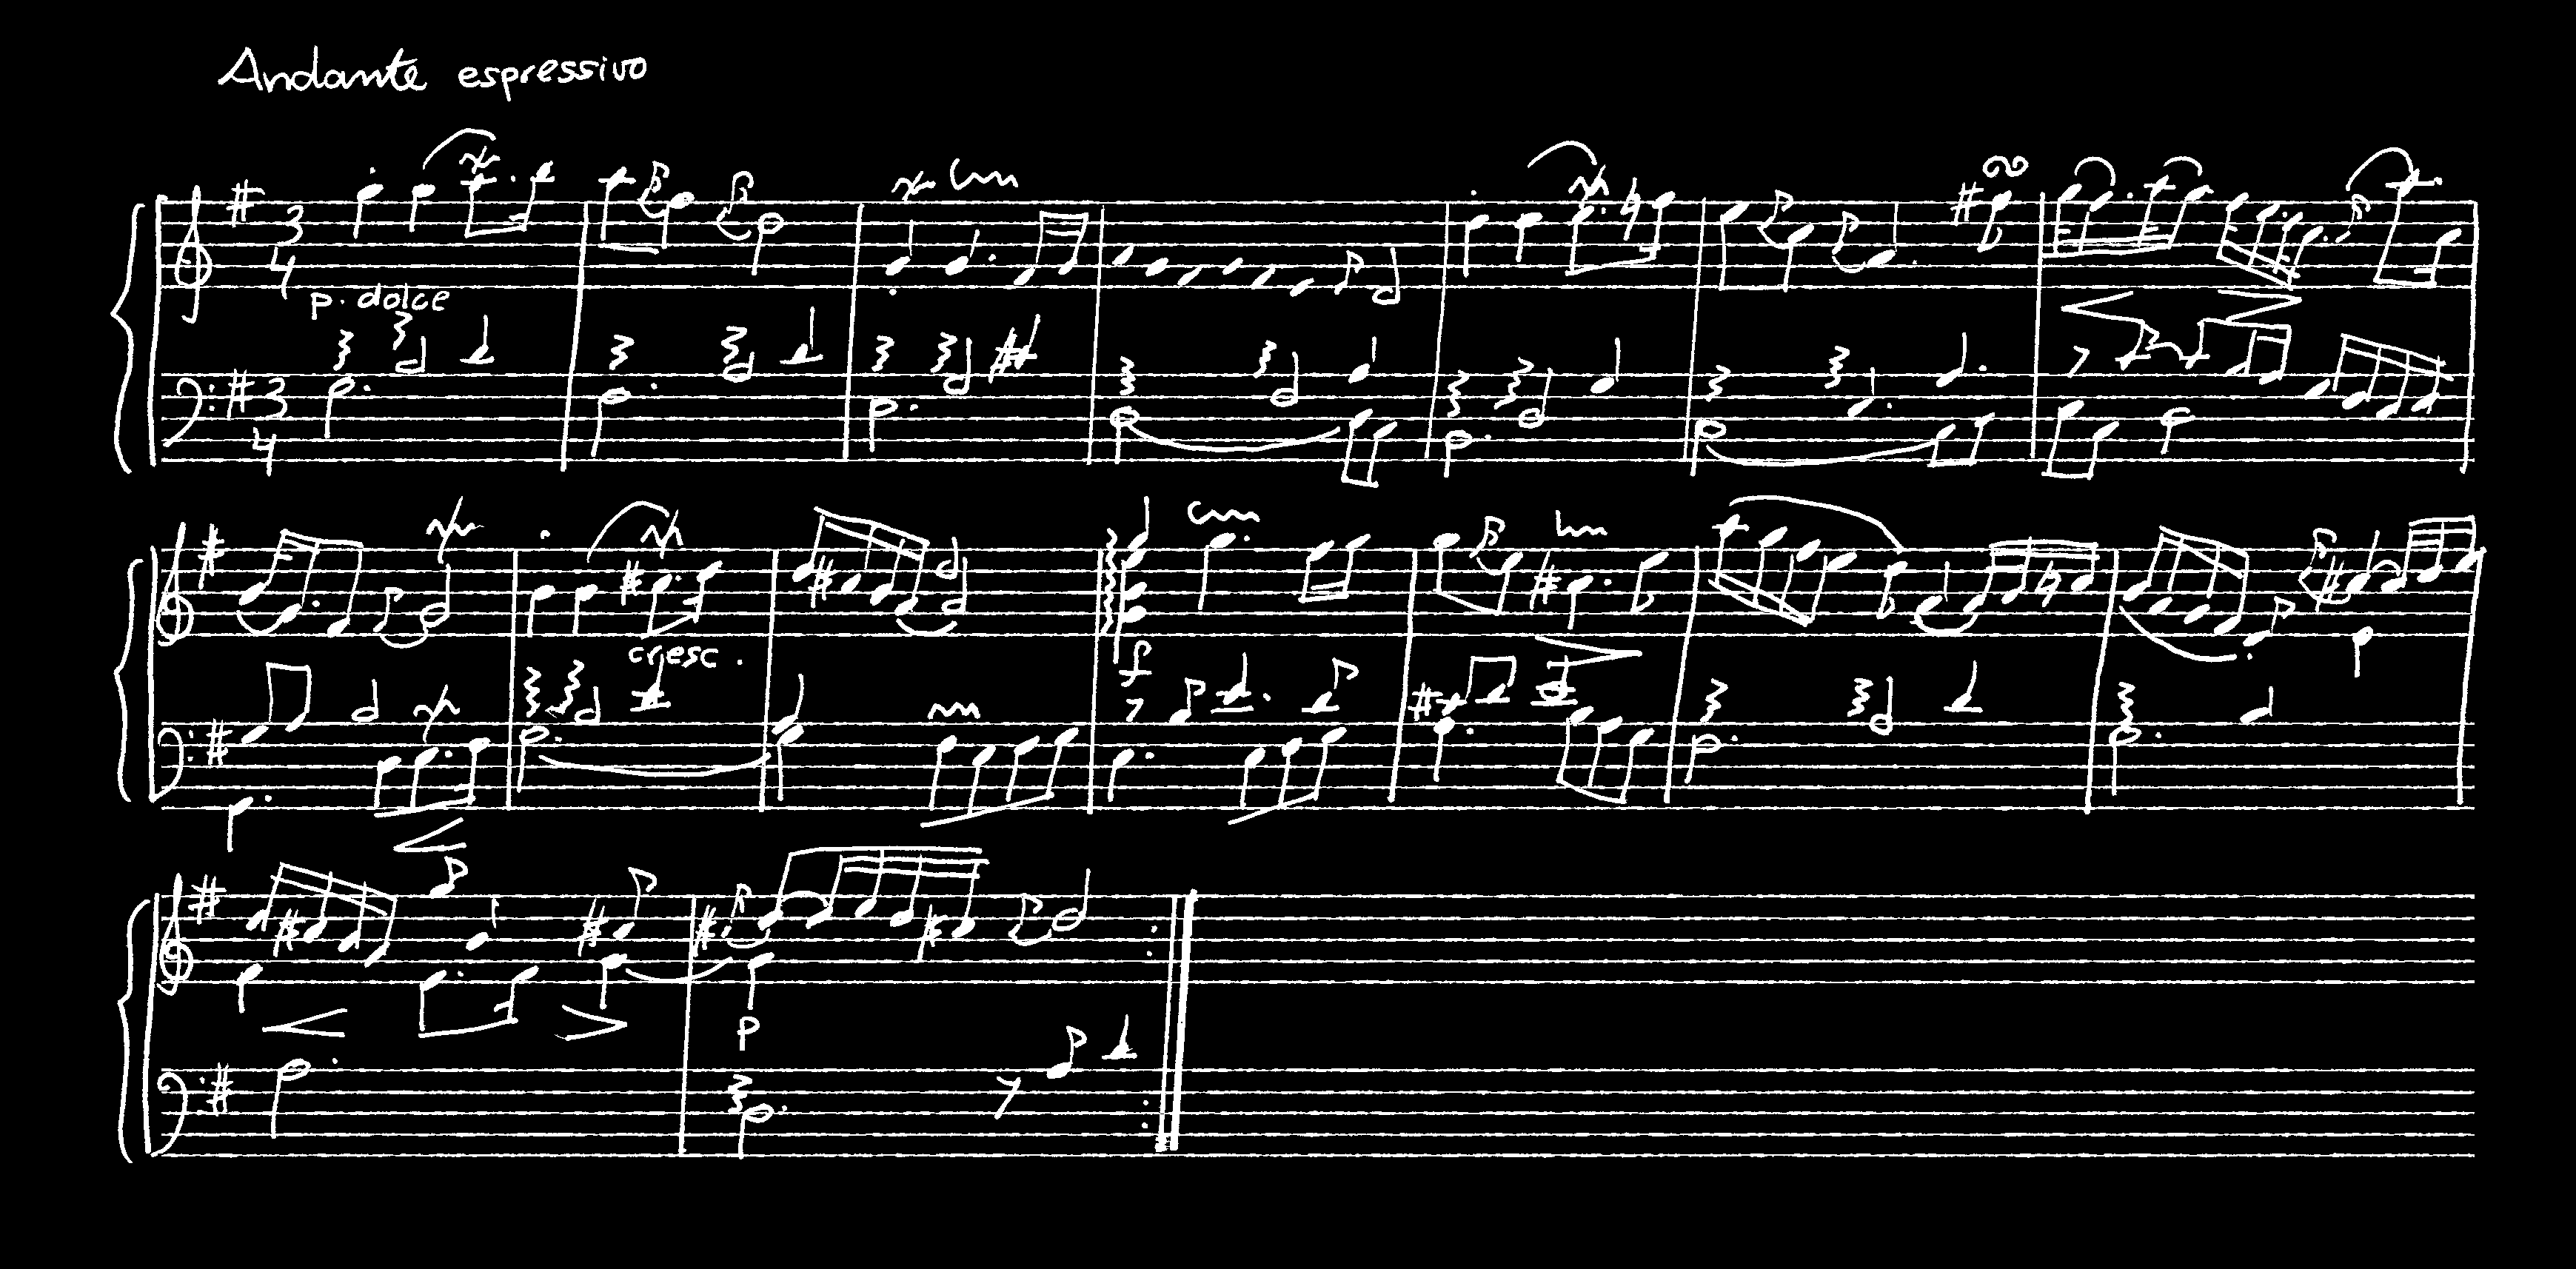 Andante espressivo
3
4
p. dolce
3
4
cresc.
f
p